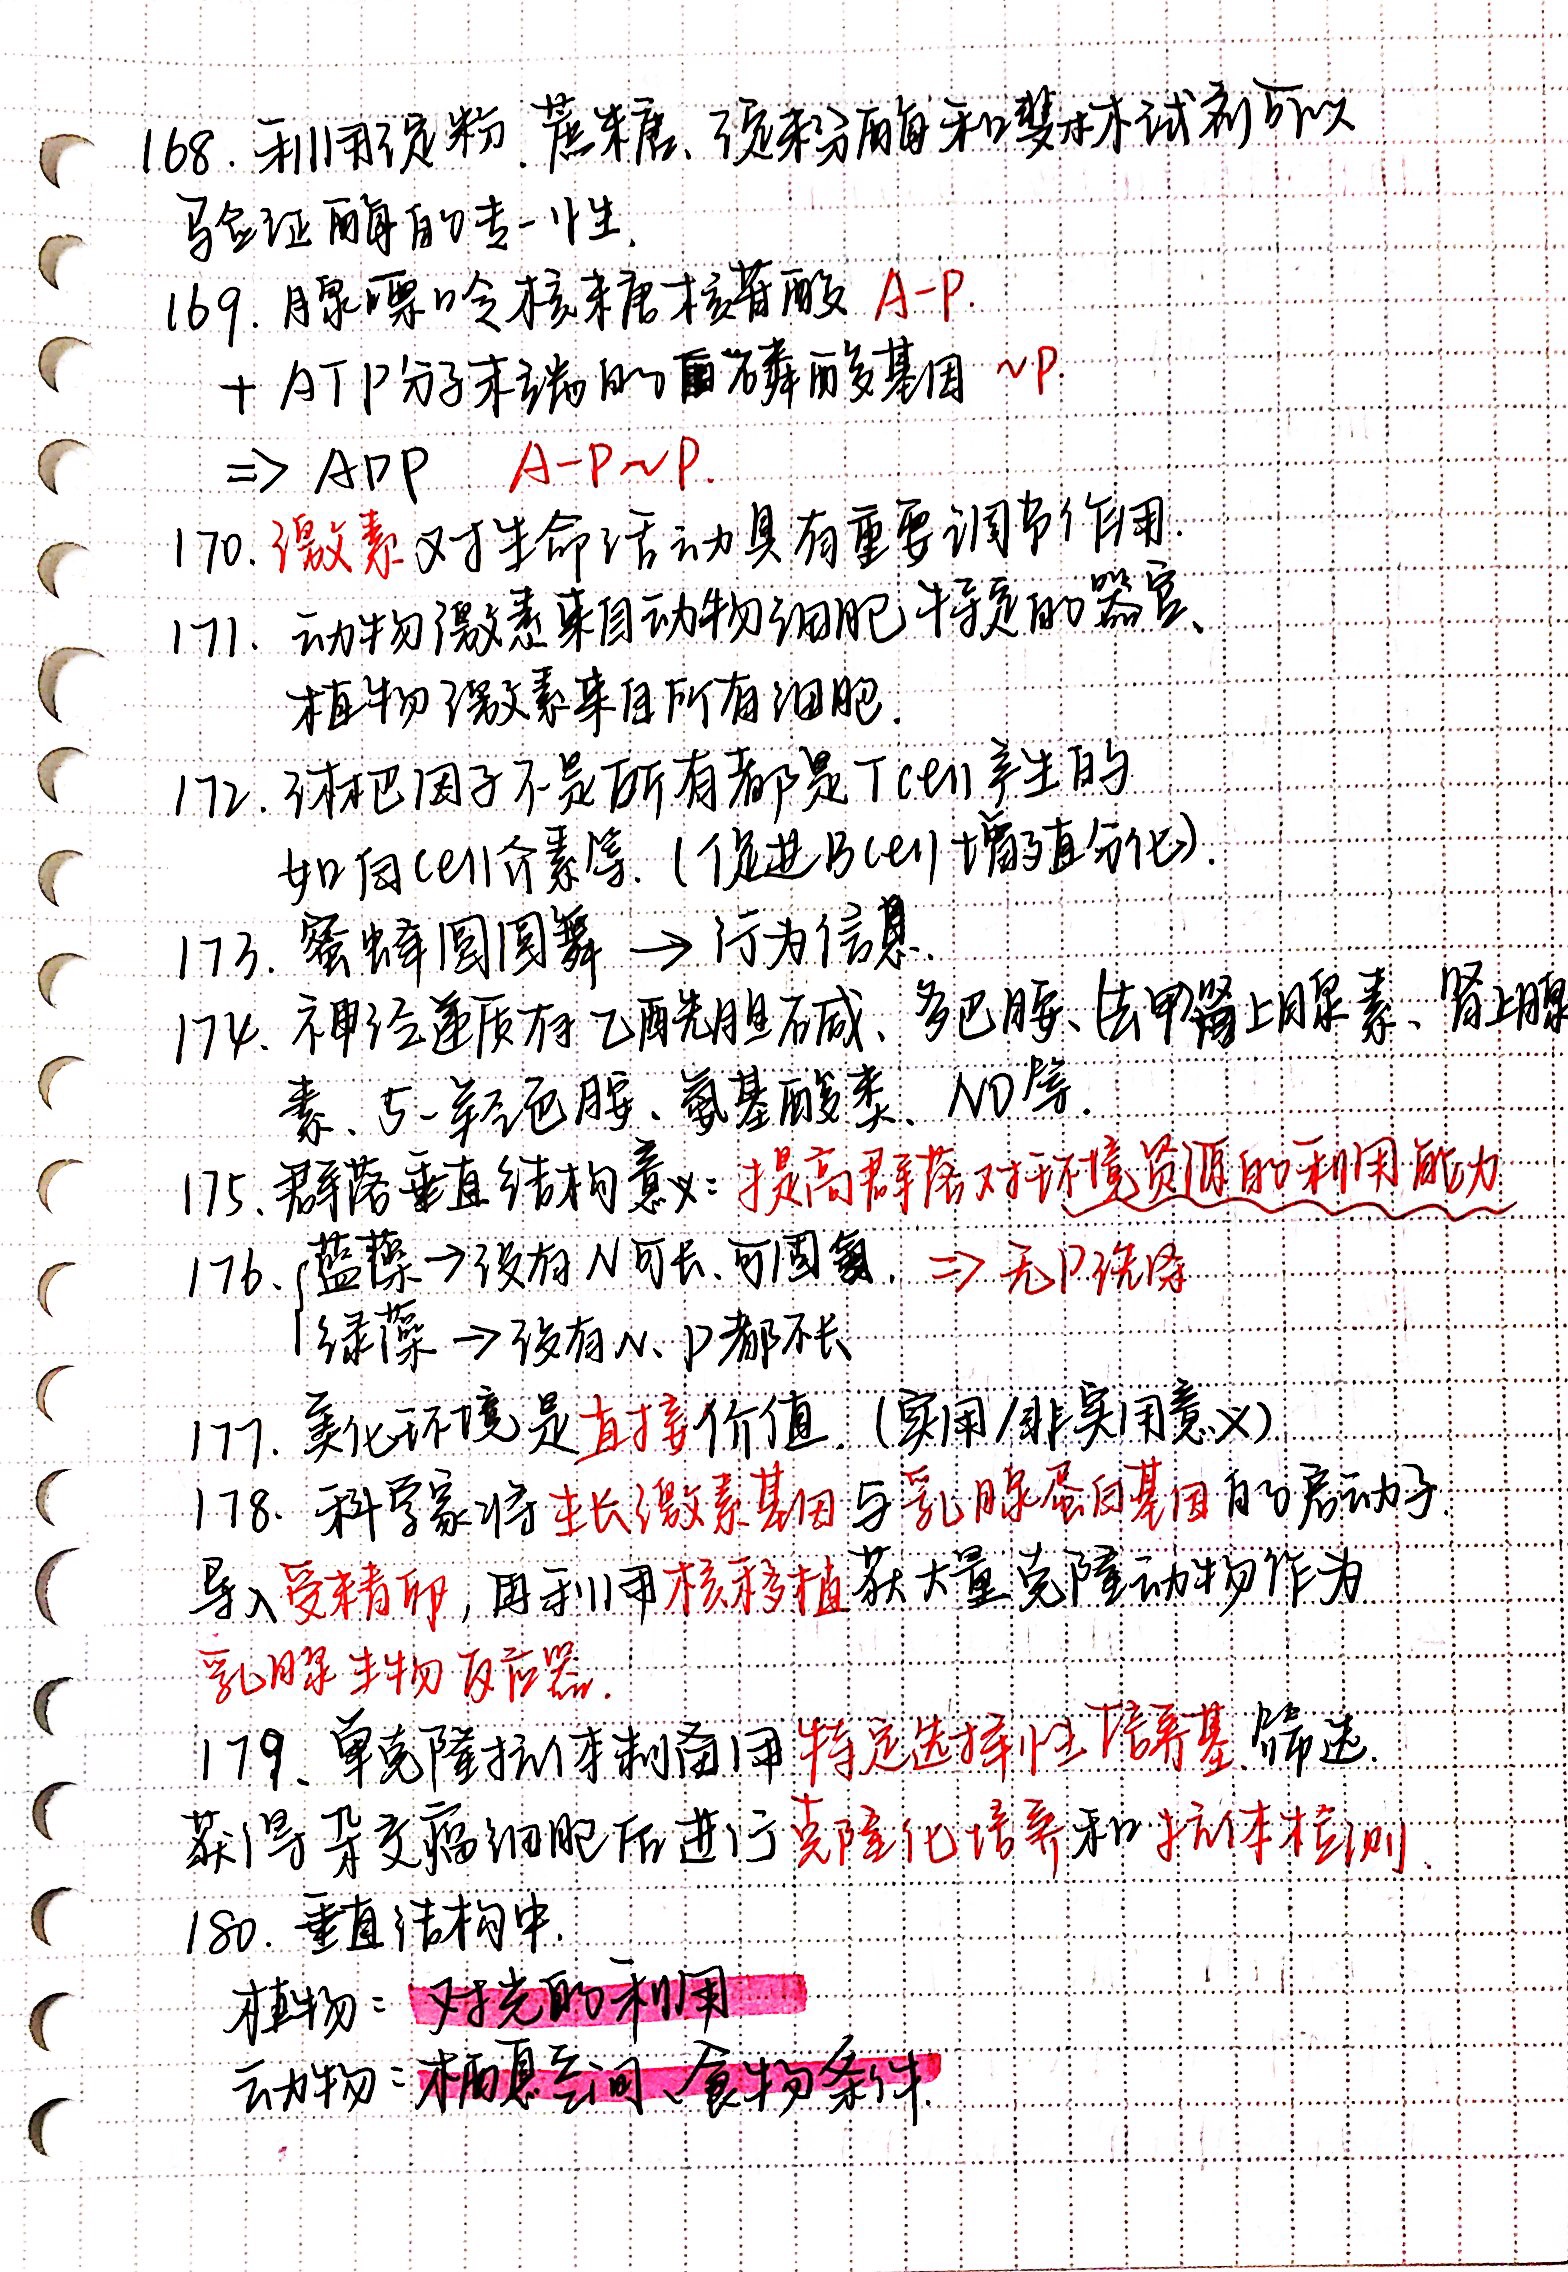 168. 利用淀粉、蔗糖、淀粉酶和斐林试剂可以
验证酶的专一性.
169. 腺嘌呤核糖核苷酸 A-P.
+ ATP分子末端的磷酸基因 ~P.
=> ADP A-P~P.
170. 激素对生命活动具有重要调节作用.
171. 动物激素来自动物细胞特定的器官、
植物激素来自所有细胞.
172. 淋巴因子不是所有都是T cell产生的
如白cell介素等.(促进Bcell增殖分化).
173. 蜜蜂圆圆舞 → 行为信息.
174. 神经递质有乙酰胆碱、多巴胺、去甲肾上腺素、肾上腺
素、5-羟色胺、氨基酸类、NO等.
175. 群落垂直结构意义:提高群落对环境资源的利用能力
176. 蓝藻→没有N可长.可固氮. => 无P洗涤
绿藻→没有N、P都不长
177. 美化环境是直接价值.(实用/非实用意义)
178. 科学家将生长激素基因与乳腺蛋白基因的启动子
导入受精卵,再利用核移植获大量克隆动物作为
乳腺生物反应器.
179、单克隆抗体制备用特定选择性培养基.筛选.
获得杂交瘤细胞后进行克隆化培养和抗体检测.
180. 垂直结构中.
植物: 对光的利用
动物: 栖息空间、食物条件.